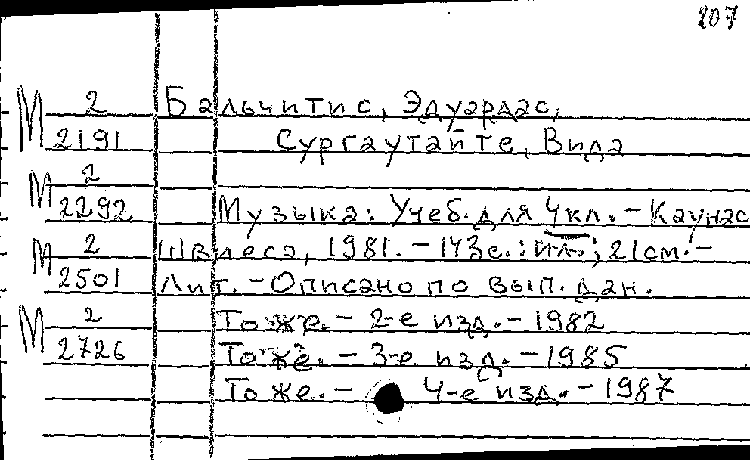 207
М 2 Бальчитис, Эдуардас,
2191 Сургаутайте, Вида
М 2
2292 Музыка: Учеб. для 4 кл. – Каунас
М 2 Швиеса, 1981. – 143 с.: ил.; 21 см. –
2501 Лит. – Описано по вып. дан.
М 2 То же. – 2-е изд. – 1982
2726 То же. – 3-е изд. – 1985
То же. – 4-е изд. – 1987